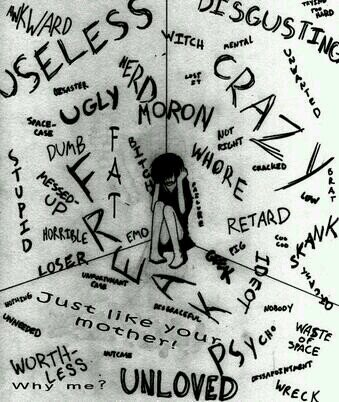 AWKWARD
DISGUSTING
TRYING TOO HARD
USELESS
WITCH
MENTAL
UNWANTED
DISASTER
NERD
LOST IT
CRAZY
UGLY
MORON
SPACE-CASE
NOT RIGHT
DUMB
FAT
BITCH
WHORE
CRACKED
STUPID
MESSED-UP
FREAK
LOW
BRAT
HORRIBLE
EMO
RETARD
SKANK
COO COO
PIG
LOSER
GEEK
IDEOT
UNIMPORTANT CASE
NOTHING
Just like your mother!
DISGRACEFUL
NOBODY
UNNEEDED
PSYCHO
WASTE OF SPACE
WORTH-LESS
NUTCASE
Why me?
UNLOVED
DISSAPOINTMENT
WRECK